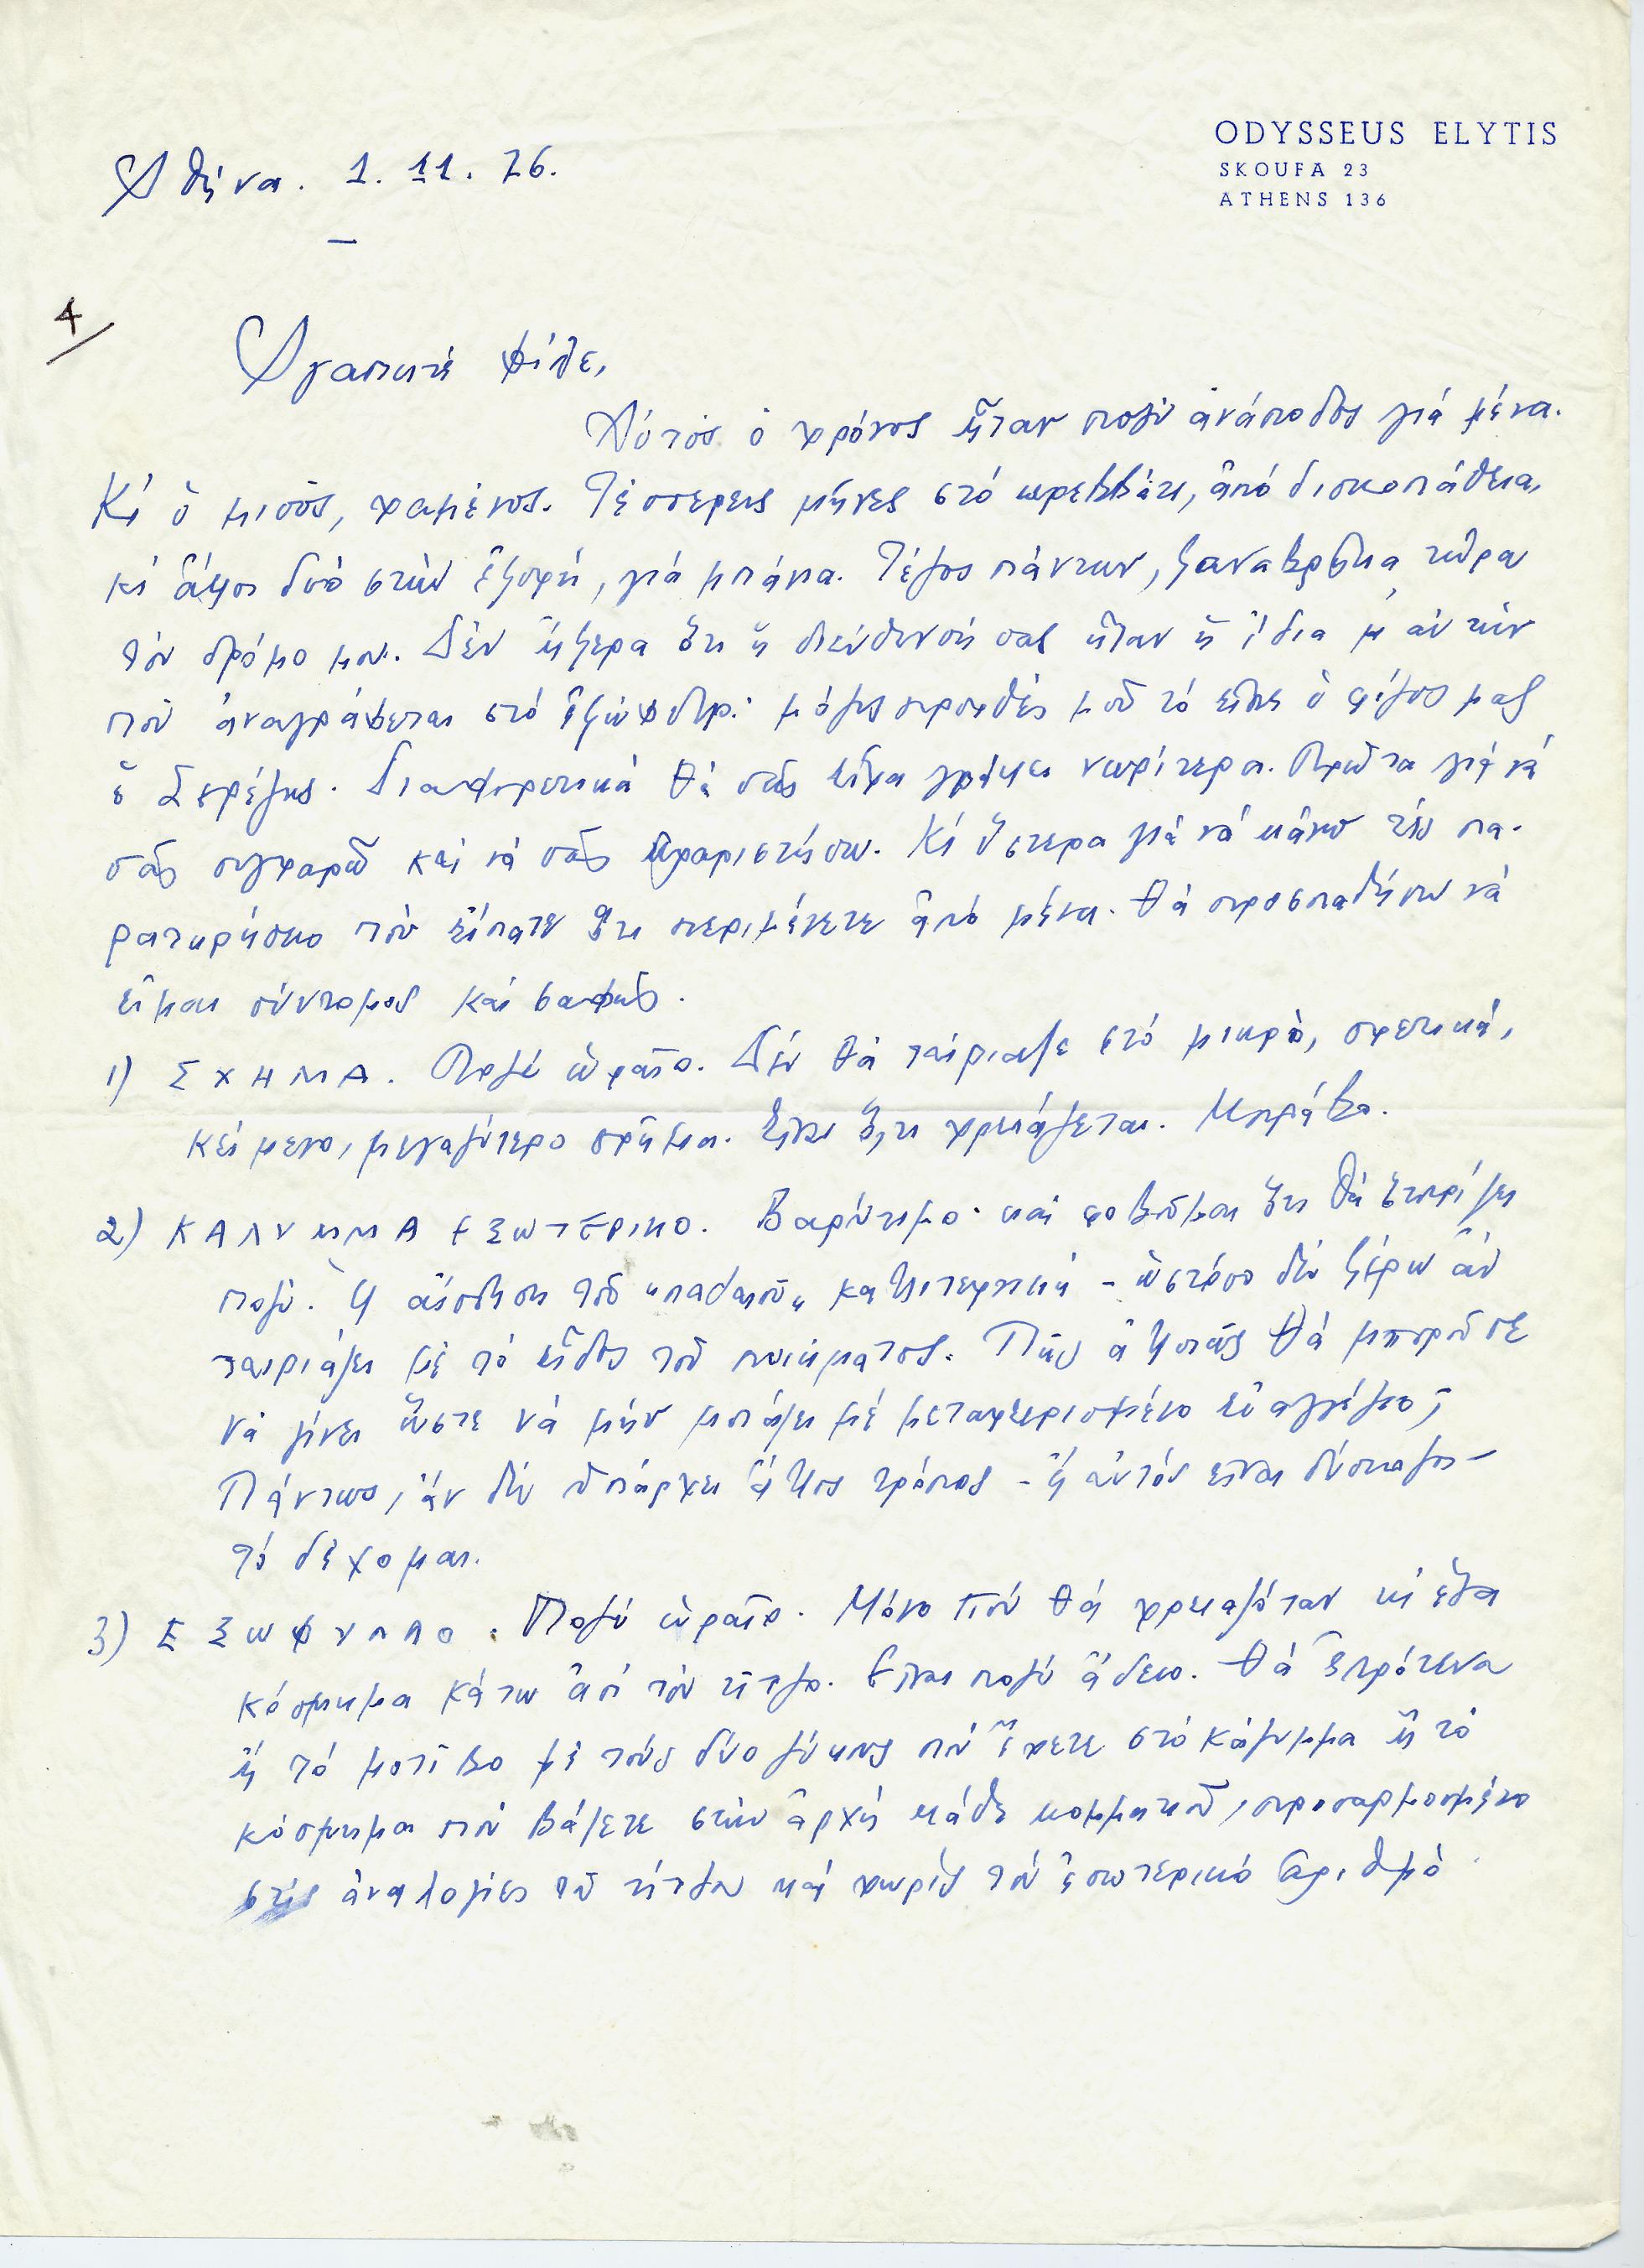 ODYSSEUS ELYTIS
SKOUFA 23
ATHENS 136
Ἀθήνα. 1. 11. 76.
4
Ἀγαπητέ φίλε,
Αὐτὸς ὁ χρόνος ἦταν πολὺ ἀνάποδος γιά μένα.
Κι ὁ μισός, χαμένος. Τέσσερεις μῆνες στό κρεββάτι, ἀπό δισκοπάθεια,
κι ἄλλοι δυό στήν ἐξοχή, γιά μπάνια. Τέλος πάντων, ξαναβρῆκα τώρα
τόν δρόμο μου. Δέν ἤξερα ὅτι ἡ διεύθυνσή σας ἦταν ἡ ἴδια μ' αὐτήν
πού ἀναγράφεται στό ἐξώφυλλο· μόλις προχθές μοῦ τό εἶπε ὁ φίλος μας
ὁ Σερέλης. Διαφορετικά θά σᾶς εἶχα γράψει νωρίτερα. Πρῶτα γιά νά
σᾶς συγχαρῶ καί νά σᾶς εὐχαριστήσω. Κι ὕστερα γιά νά κάνω τίς πα-
ρατηρήσεις πού εἴπατε ὅτι περιμένετε ἀπό μένα. Θά προσπαθήσω νά
εἶμαι σύντομος καί σαφής.
1) ΣΧΗΜΑ. Πολύ ὡραῖο. Δέν θά ταίριαζε στό μικρό, σχετικά,
κείμενο, μεγαλύτερο σχῆμα. Εἶναι ὅ,τι χρειάζεται. Μπράβο.
2) ΚΑΛΥΜΜΑ ΕΞΩΤΕΡΙΚΟ. Βαρύτιμο· καί φοβοῦμαι ὅτι θά στοιχίζει
πολύ. Ἡ αἴσθηση τοῦ "παλαιοῦ" καλλιτεχνική - ὡστόσο δέν ξέρω ἄν
ταιριάζει μέ τό εἶδος τοῦ ποιήματος. Πῶς ἀλλοιῶς θά μποροῦσε
νά γίνει ὥστε νά μήν μοιάζει μέ μεταχειρισμένο εὐαγγέλιο;
Πάντως, ἄν δέν ὑπάρχει ἄλλος τρόπος - ἤ αὐτός εἶναι δύσκολος -
τό δέχομαι.
3) ΕΣΩΦΥΛΛΟ. Πολύ ὡραῖο. Μόνο πού θά χρειαζόταν κι ἕνα
κόσμημα κάτω ἀπ' τόν τίτλο. Εἶναι πολύ ἄδειο. Θά ἐπρότεινα
ἤ τό μοτίβο μέ τούς δύο λύκους πού ἔχετε στό κάλυμμα ἤ τό
κόσμημα πού βάζετε στήν ἀρχή κάθε κομματιοῦ, προσαρμοσμένο
στίς ἀναλογίες τοῦ τίτλου καί χωρίς τόν ἐσωτερικό ἀριθμό